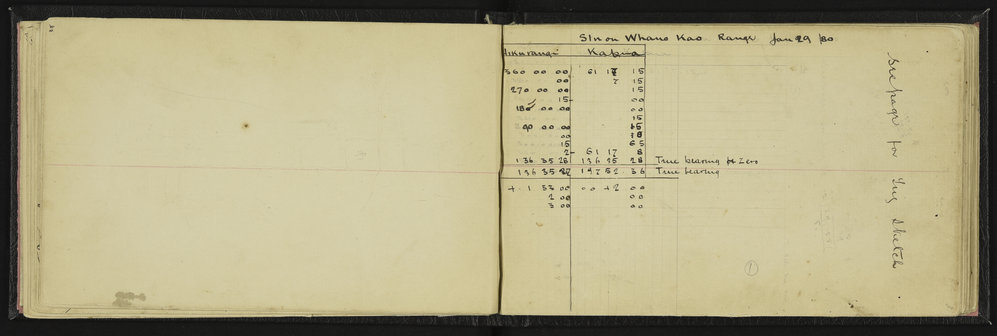 Stn on Whano Kao Range Jan 29 /80
Hikurangi Kapua
360 00 00 61 17 15
00 7 15
270 00 00 15
15 00
180 00 00 00
15
90 00 00 15
00
15 65
2 61 17 8
136 35 28 136 35 28 True bearing for Zero
136 35 197 52 36 True bearing
+ 1 53 00 00 +2 00
2 00 00
3 00 00
See page for Trig Sketch
1